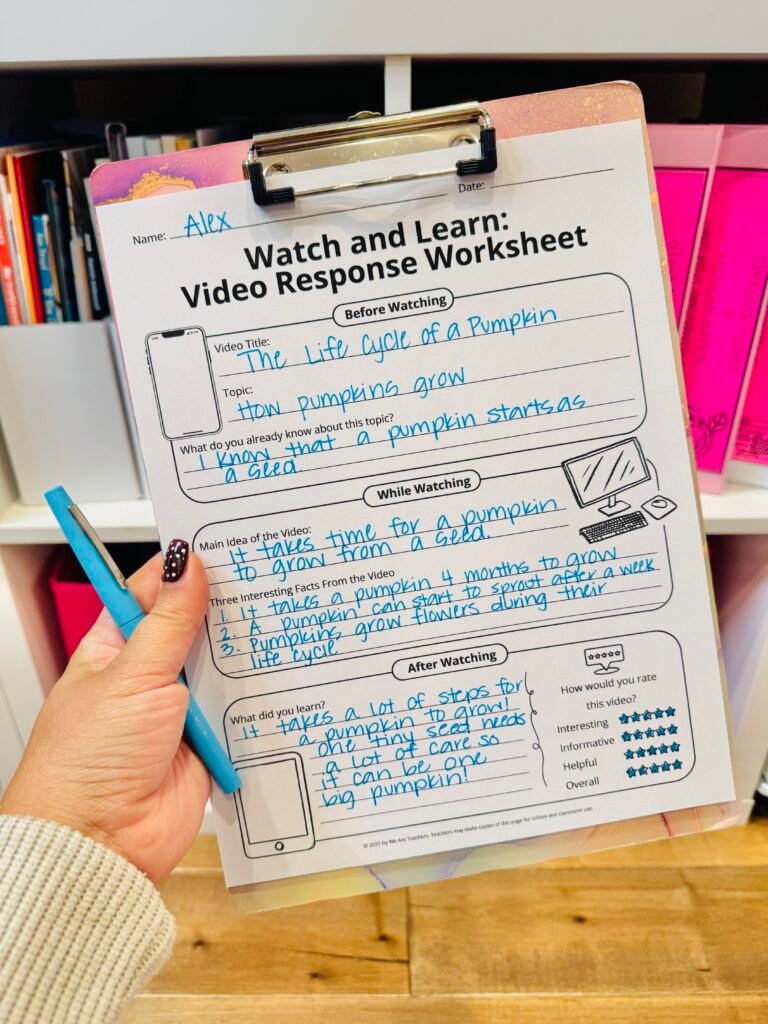 Date:
Name: Alex
Watch and Learn:
Video Response Worksheet
Before Watching
Video Title:
The Life Cycle of a Pumpkin
Topic:
How pumpkins grow
What do you already know about this topic?
I know that a pumpkin starts as
a seed.
While Watching
Main Idea of the Video:
It takes time for a pumpkin
to grow from a seed.
Three Interesting Facts From the Video
1. It takes a pumpkin 4 months to grow
2. A pumpkin can start to sprout after a week
3. Pumpkins grow flowers during their
life cycle
After Watching
What did you learn?
It takes a lot of steps for
a pumpkin to grow!
one tiny seed needs
a lot of care so
it can be one
big pumpkin!
How would you rate
this video?
Interesting
Informative
Helpful
Overall
© 2025 by We Are Teachers. Teachers may make copies of this page for school and classroom use.